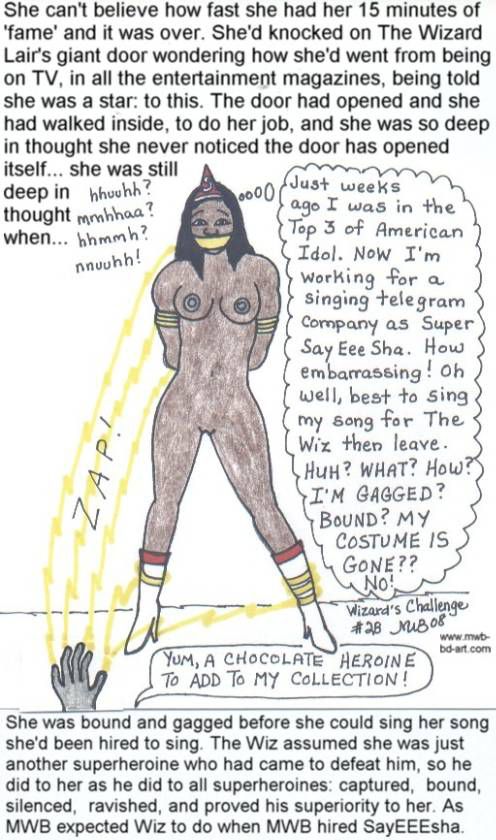 She can't believe how fast she had her 15 minutes of
'fame' and it was over. She'd knocked on The Wizard
Lair's giant door wondering how she'd went from being
on TV, in all the entertainment magazines, being told
she was a star: to this. The door had opened and she
had walked inside, to do her job, and she was so deep
in thought she never noticed the door has opened
itself... she was still
deep in
thought
when...
hhuuhh?
mmhhaa?
hhmmh?
nnuuhh!
Just weeks
ago I was in the
Top 3 of American
Idol. Now I'm
working for a
singing telegram
company as Super
Say Eee Sha. How
embarrassing! Oh
well, best to sing
my song for The
Wiz then leave.
HUH? WHAT? HOW?
I'M GAGGED?
BOUND? MY
COSTUME IS
GONE??
NO!
ZAP!
Wizard's Challenge
#28 MWB 08
www.mwb-
bd-art.com
YUM, A CHOCOLATE HEROINE
TO ADD TO MY COLLECTION!
She was bound and gagged before she could sing her song
she'd been hired to sing. The Wiz assumed she was just
another superheroine who had came to defeat him, so he
did to her as he did to all superheroines: captured, bound,
silenced, ravished, and proved his superiority to her. As
MWB expected Wiz to do when MWB hired SayEEEsha.